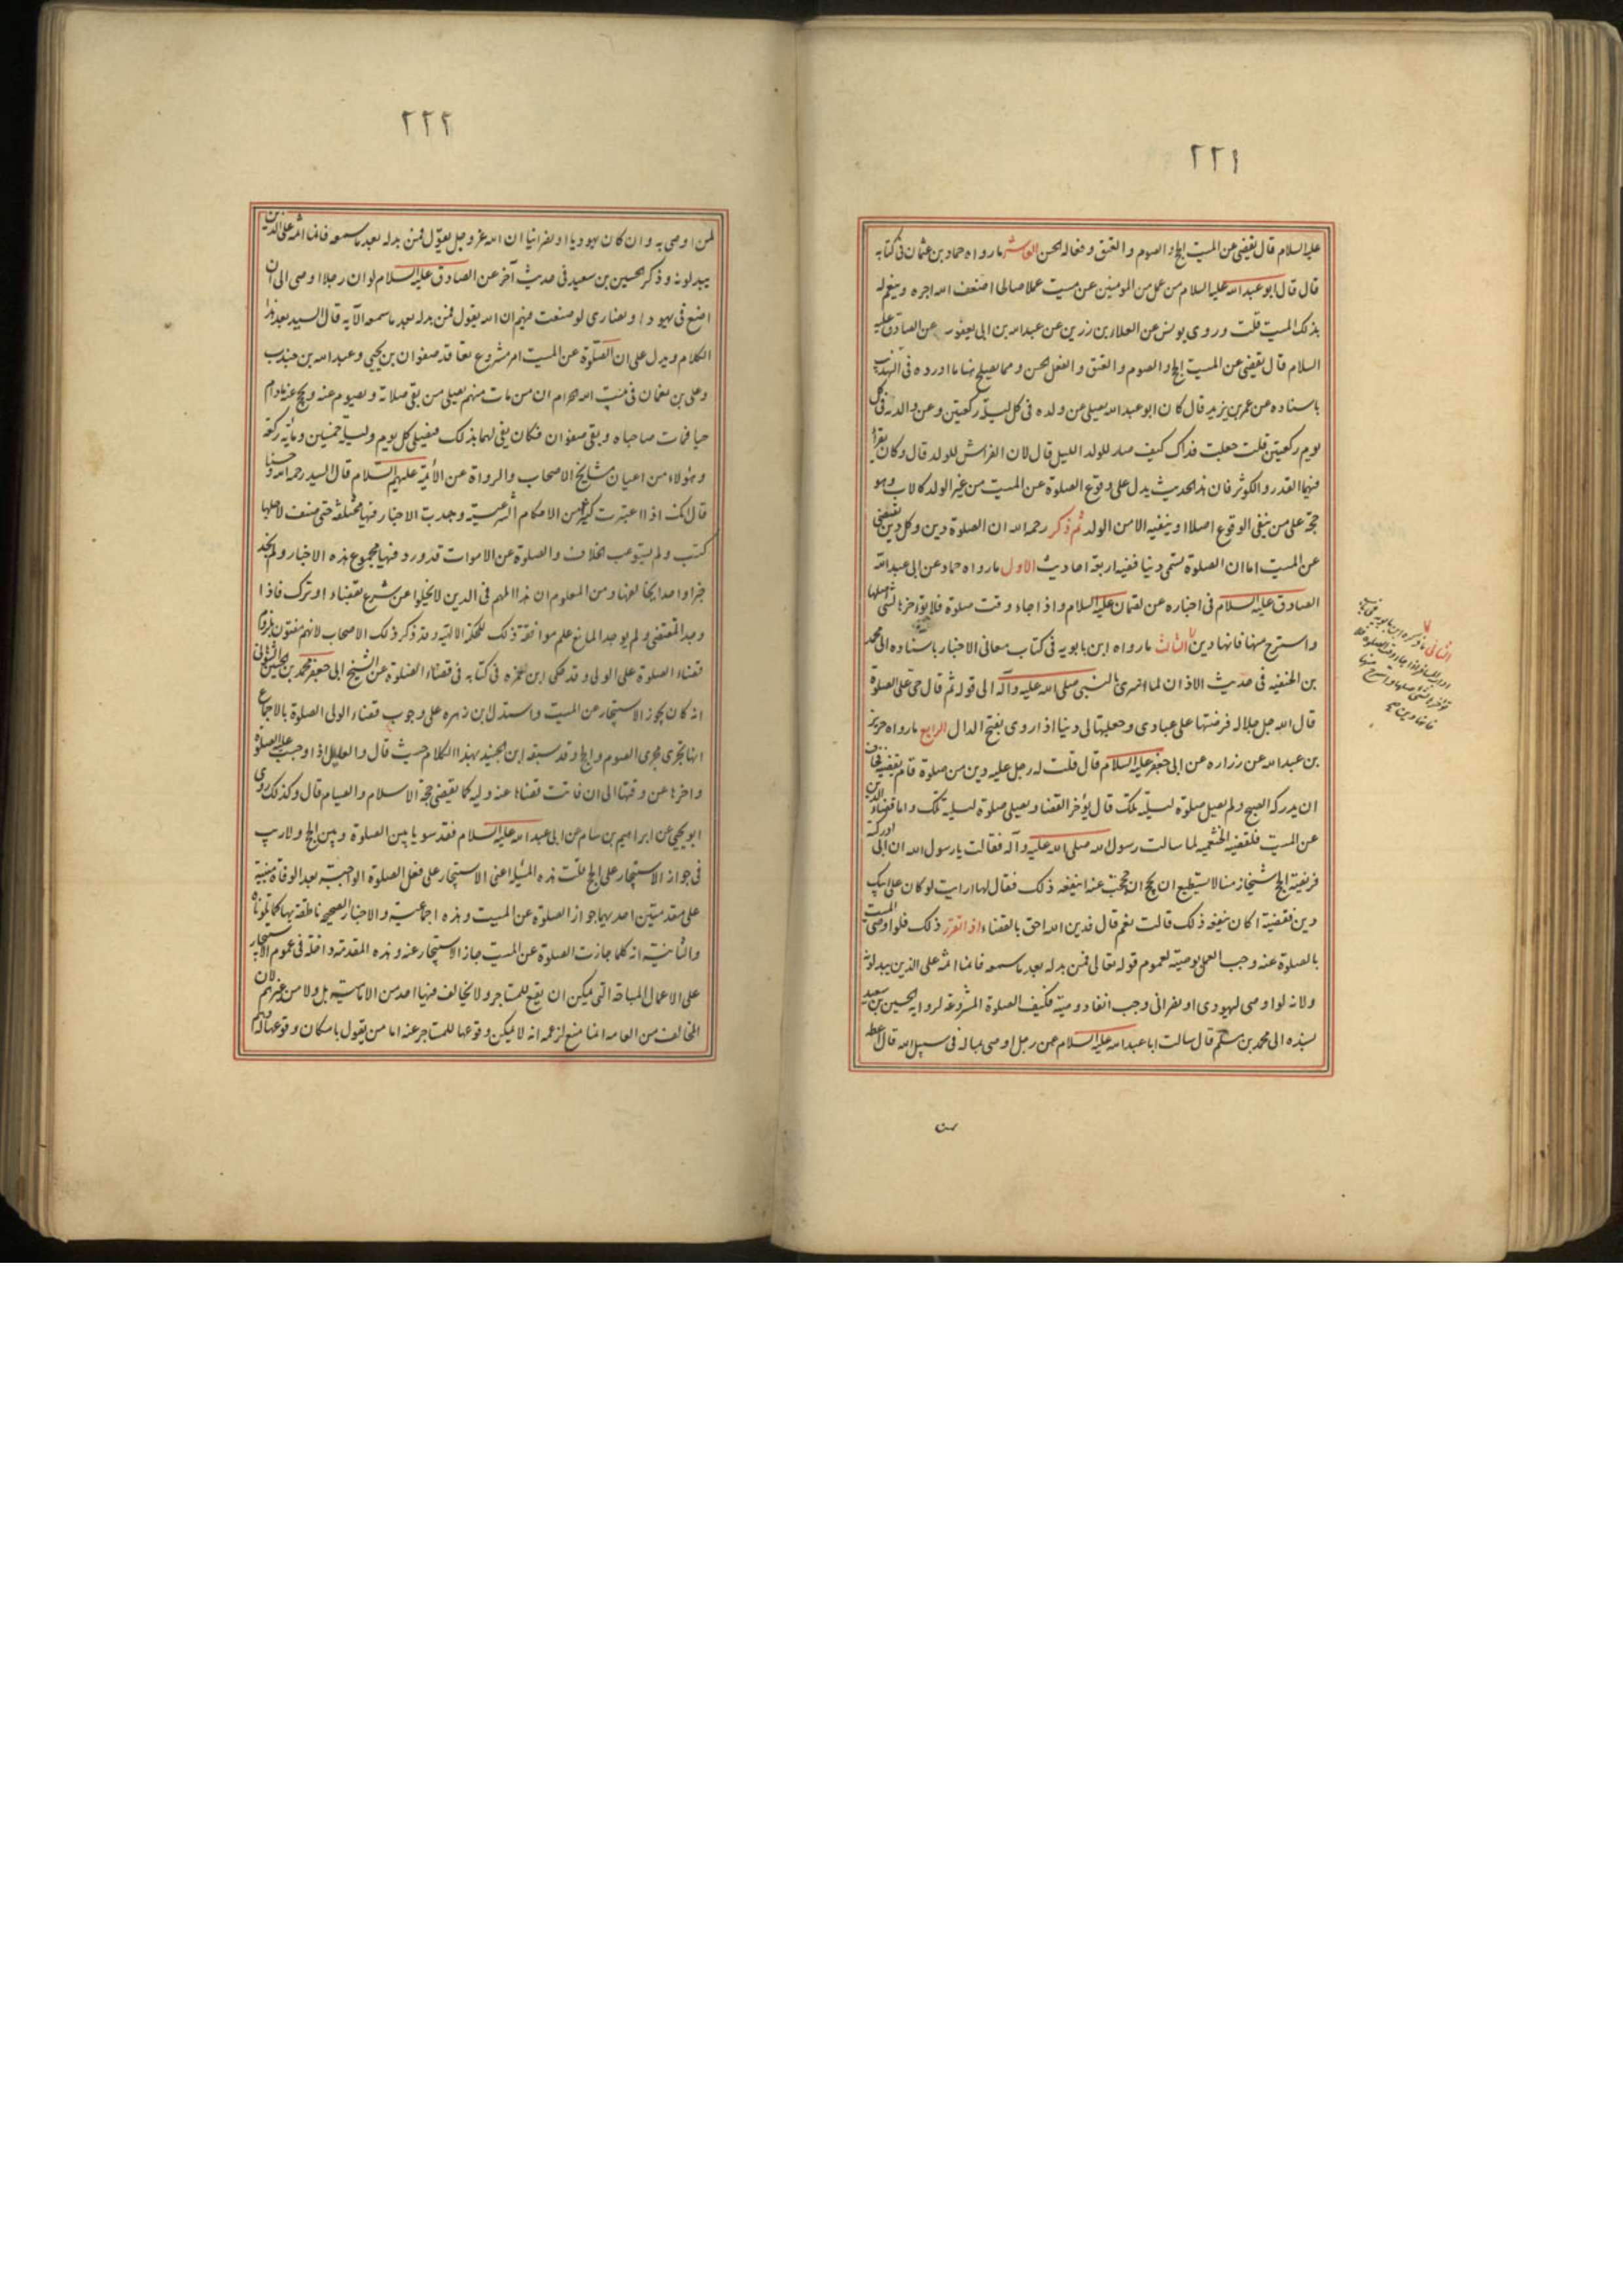 ٢٢١
عليه السلام قال يقضى عن الميت الحج و الصوم و العتق و فعاله الحسن العاشر ما رواه حماد بن عثمان فى كتابه
قال قال ابو عبد الله عليه السلام من عمل من المومنين عن ميت عملا صالحا اضعف الله اجره و ينعم له
بذلك الميت قلت و روى يونس عن العلاء بن رزين عن عبد الله بن ابى يعفور عن الصادق عليه
السلام قال يقضى عن الميت الحج و الصوم و العتق و الفعل الحسن و مما يصلح هنا ما اورده فى التهذيب
باسناده عن عمر بن يزيد قال كان ابو عبد الله يصلى عن ولده فى كل ليلة ركعتين و عن والده فى كل
يوم ركعتين قلت جعلت فداك كيف صار للولد الليل قال لان الفراش للولد قال و كان يقرأ
فيهما القدر و الكوثر فان هذا الحديث يدل على وقوع الصلوة عن الميت من غير الولد كالاب و هو
حجة على من ينفى الوقوع اصلا او ينفيه الا من الولد ثم ذكر رحمه الله ان الصلوة دين و كل دين يقضى
عن الميت اما ان الصلوة تسمى دينا ففيه اربعة احاديث الاول ما رواه حماد عن ابى عبد الله
الصادق عليه السلام فى اخباره عن لقمان عليه السلام و اذا جاء وقت صلوة فلا تؤخرها لشى صلها
و استرح منها فانها دين الثالث ما رواه ابن بابويه فى كتاب معانى الاخبار باسناده الى محمد
بن الحنفيه فى حديث الاذان لما اسرى بالنبى صلى الله عليه و آله الى قوله ثم قال حى على الصلوة
قال الله جل جلاله فرضتها على عبادى و جعلتها لى دينا اذا روى بفتح الدال الرابع ما رواه حريز
بن عبد الله عن زراره عن ابى جعفر عليه السلام قال قلت له رجل عليه دين من صلوة قام يقضيه فخاف
ان يدركه الصبح و لم يصل صلوة ليلته تلك قال يؤخر القضا و يصلى صلوة ليلته تلك و اما قضاء الدين
عن الميت فلقضيه الخثعميه لما سالت رسول الله صلى الله عليه و آله فقالت يا رسول الله ان ابى ادركته
فريضة الحج شيخا زمنا لا يستطيع ان يحج ان حججت عنه اينفعه ذلك فقال لها ارايت لو كان على ابيك
دين فقضيته اكان ينفعه ذلك قالت نعم قال فدين الله احق بالقضاء اذا تقرر ذلك فلو اوصى الميت
بالصلوة عنه وجب العمل بوصيته لعموم قوله تعالى فمن بدله بعد ما سمعه فانما اثمه على الذين يبدلونه
و لانه لو اوصى ليهودى او نصرانى وجب انفاد وصيته فكيف الصلوة المشروعة لرواية الحسين بن سعيد
بسنده الى محمد بن مسلم قال سالت ابا عبد الله عليه السلام عن رجل اوصى بماله فى سبيل الله قال اعطه
الثانى ما ذكره ابن بابويه فى
اداب المسافر اذا جاء وقت الصلوة فلا
تؤخرها لشى صلها و استرح منها
فانها دين صح
٢٢٢
لمن اوصى به و ان كان يهوديا او نصرانيا ان الله عز و جل يقول فمن بدله بعد ما سمعه فانما اثمه على الذين
يبدلونه و ذكر الحسين بن سعيد فى حديث آخر عن الصادق عليه السلام لو ان رجلا اوصى الى ان
اضع فى يهود او نصارى لوضعت فيهم ان الله يقول فمن بدله بعد ما سمعه الآيه قال السيد بعد هذا
الكلام و يدل على ان الصلوة عن الميت امر مشروع تعاقد صفوان بن يحيى و عبد الله بن جندب
و على بن نعمان فى بيت الله الحرام ان من مات منهم يصلى من بقى صلاته و يصوم عنه و يحج عنه مادام
حيا فمات صاحباه و بقى صفوان فكان يفى لهما بذلك فيصلى كل يوم و ليلة خمسين و مائة ركعة
و هؤلاء من اعيان مشايخ الاصحاب و الرواة عن الأئمة عليهم السلام قال السيد رحمه الله و حسنا
قال انك اذا اعتبرت كثيرا من الاحكام الشرعيه وجدت الاخبار فيها مختلفة حتى صنف لاجلها
كتب و لم يستوعب الخلاف و الصلوة عن الاموات قد ورد فيها مجموع هذه الاخبار و لم نجد
خبرا واحدا يخالفها و من المعلوم ان هذا المهم فى الدين لا يخلوا عن شرع بقضاء او ترك فاذا
وجد المقتضى و لم يوجد المانع علم موافقة ذلك للحكمة الالهيه و قد ذكر ذلك الاصحاب لانهم مفتون بلزوم
قضاء الصلوة على الولى و قد حكى ابن حمزه فى كتابه فى قضاء الصلوة عن الشيخ ابى جعفر محمد بن الحسين الشوهانى
انه كان يجوز الاستيجار عن الميت و استدل ابن زهره على وجوب قضاء الولى الصلوة بالاجماع
انها تجرى مجرى الصوم و الحج و قد سبقه ابن الجنيد بهذا الكلام حيث قال و العليل اذا وجبت عليه الصلوة
و اخرها عن وقتها الى ان فاتت قضاها عنه وليه كما يقضى حجة الاسلام و الصيام قال و كذلك روى
ابو يحيى عن ابراهيم بن سام عن ابى عبد الله عليه السلام فقد سويا بين الصلوة و بين الحج و لا ريب
فى جواز الاستيجار على الحج قلت هذه المسئلة اعنى الاستيجار على فعل الصلوة الواجبة بعد الوفاة مبنية
على مقدمتين احديهما جواز الصلوة عن الميت و هذه اجماعية و الاخبار الصحيحه ناطقة بها كما تلوناه
و الثانية انه كلما جازت الصلوة عن الميت جاز الاستيجار عنه و هذه المقدمة داخلة فى عموم الاستيجار
على الاعمال المباحة التى يمكن ان يقع للمستاجر و لا يخالف فيها احد من الامامية بل و لا من غيرهم لان
المخالف من العامه انما منع لزعمه انه لا يمكن وقوعها للمستاجر عنه اما من يقول بامكان وقوعها له